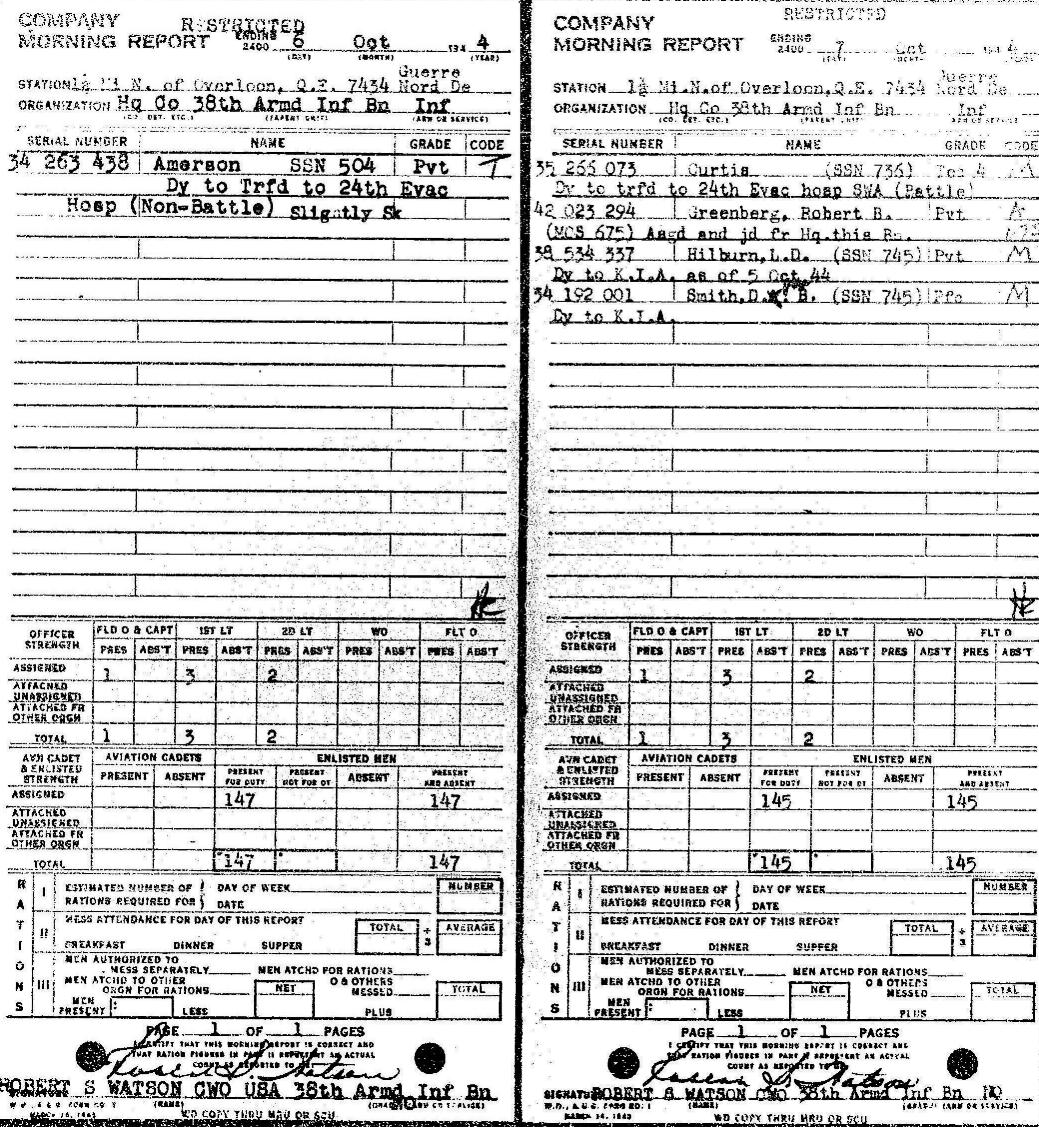 COMPANY
MORNING REPORT
RESTRICTED
ENDING 2400 6 Oct 194 4
(DAY) (MONTH) (YEAR)
STATION 1½ Mi N. of Overloon, Q.E. 7434 Guerre Nord De
ORGANIZATION Hq Co 38th Armd Inf Bn Inf
(CO. DET. ETC.) (PARENT UNIT) (ARM OR SERVICE)
SERIAL NUMBER NAME GRADE CODE
34 263 438 Amerson SSN 504 Pvt T
Dy to Trfd to 24th Evac
Hosp (Non-Battle) Slightly Sk
OFFICER STRENGTH FLD O & CAPT 1ST LT 2D LT WO FLT O
PRES ABS'T PRES ABS'T PRES ABS'T PRES ABS'T PRES ABS'T
ASSIGNED 1 3 2
ATTACHED UNASSIGNED
ATTACHED FR OTHER ORGN
TOTAL 1 3 2
AVN CADET & ENLISTED STRENGTH AVIATION CADETS ENLISTED MEN
PRESENT ABSENT PRESENT FOR DUTY PRESENT NOT FOR DY ABSENT PRESENT AND ABSENT
ASSIGNED 147 147
ATTACHED UNASSIGNED
ATTACHED FR OTHER ORGN
TOTAL 147 147
RATIONS
I ESTIMATED NUMBER OF RATIONS REQUIRED FOR } DAY OF WEEK DATE NUMBER
II MESS ATTENDANCE FOR DAY OF THIS REPORT TOTAL ÷ 3 AVERAGE
BREAKFAST DINNER SUPPER
III MEN AUTHORIZED TO MESS SEPARATELY MEN ATCHD FOR RATIONS
MEN ATCHD TO OTHER ORGN FOR RATIONS NET O & OTHERS MESSED TOTAL
MEN PRESENT LESS PLUS
PAGE 1 OF 1 PAGES
I CERTIFY THAT THIS MORNING REPORT IS CORRECT AND
THAT RATION FIGURES IN PART II REPRESENT AN ACTUAL
COUNT AS REPORTED TO ME
ROBERT S WATSON CWO USA 38th Armd Inf Bn
SIGNATURE
W.D., A.G.O. FORM NO. 1 (NAME)
MARCH 15, 1943
WD COPY THRU MRU OR SCU
COMPANY
MORNING REPORT
RESTRICTED
ENDING 2400 7 Oct 194 4
STATION 1½ Mi.N.of Overloon,Q.E. 7434 Guerre Nord De
ORGANIZATION Hq Co 38th Armd Inf Bn Inf
(CO. DET. ETC.) (PARENT UNIT) (ARM OR SERVICE)
SERIAL NUMBER NAME GRADE CODE
35 266 073 Curtis (SSN 736) Tec 4 M
Dy to trfd to 24th Evac hosp SWA (Battle)
42 023 294 Greenberg, Robert B. Pvt A
(MOS 675) Asgd and jd fr Hq.this Bn. 675
38 534 337 Hilburn,L.D. (SSN 745) Pvt M
Dy to K.I.A. as of 5 Oct 44
34 192 001 Smith,D. B. (SSN 745) Pfc M
Dy to K.I.A.
OFFICER STRENGTH FLD O & CAPT 1ST LT 2D LT WO FLT O
PRES ABS'T PRES ABS'T PRES ABS'T PRES ABS'T PRES ABS'T
ASSIGNED 1 3 2
ATTACHED UNASSIGNED
ATTACHED FR OTHER ORGN
TOTAL 1 3 2
AVN CADET & ENLISTED STRENGTH AVIATION CADETS ENLISTED MEN
PRESENT ABSENT PRESENT FOR DUTY PRESENT NOT FOR DY ABSENT PRESENT AND ABSENT
ASSIGNED 145 145
ATTACHED UNASSIGNED
ATTACHED FR OTHER ORGN
TOTAL 145 145
RATIONS
I ESTIMATED NUMBER OF RATIONS REQUIRED FOR } DAY OF WEEK DATE NUMBER
II MESS ATTENDANCE FOR DAY OF THIS REPORT TOTAL ÷ 3 AVERAGE
BREAKFAST DINNER SUPPER
III MEN AUTHORIZED TO MESS SEPARATELY MEN ATCHD FOR RATIONS
MEN ATCHD TO OTHER ORGN FOR RATIONS NET O & OTHERS MESSED TOTAL
MEN PRESENT LESS PLUS
PAGE 1 OF 1 PAGES
I CERTIFY THAT THIS MORNING REPORT IS CORRECT AND
THAT RATION FIGURES IN PART II REPRESENT AN ACTUAL
COUNT AS REPORTED TO ME
SIGNATURE ROBERT S WATSON CWO 38th Armd Inf Bn
W.D., A.G.O. FORM NO. 1 (NAME) (GRADE) (ARM OR SERVICE)
MARCH 15, 1943
WD COPY THRU MRU OR SCU